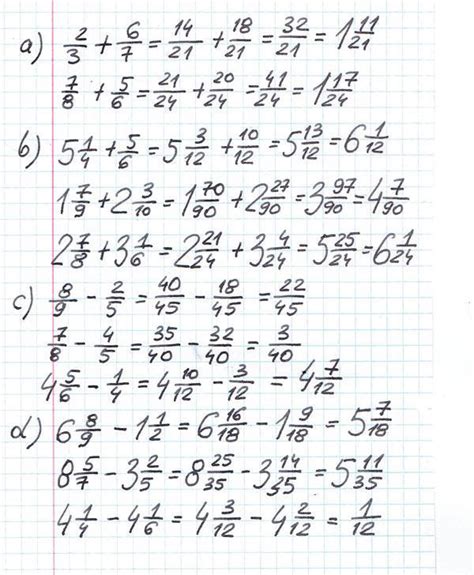 a) 2/3 + 6/7 = 14/21 + 18/21 = 32/21 = 1 11/21
7/8 + 5/6 = 21/24 + 20/24 = 41/24 = 1 17/24
b) 5 1/4 + 5/6 = 5 3/12 + 10/12 = 5 13/12 = 6 1/12
1 7/9 + 2 3/10 = 1 70/90 + 2 27/90 = 3 97/90 = 4 7/90
2 7/8 + 3 1/6 = 2 21/24 + 3 4/24 = 5 25/24 = 6 1/24
c) 8/9 - 2/5 = 40/45 - 18/45 = 22/45
7/8 - 4/5 = 35/40 - 32/40 = 3/40
4 5/6 - 1/4 = 4 10/12 - 3/12 = 4 7/12
d) 6 8/9 - 1 1/2 = 6 16/18 - 1 9/18 = 5 7/18
8 5/7 - 3 2/5 = 8 25/35 - 3 14/35 = 5 11/35
4 1/4 - 4 1/6 = 4 3/12 - 4 2/12 = 1/12